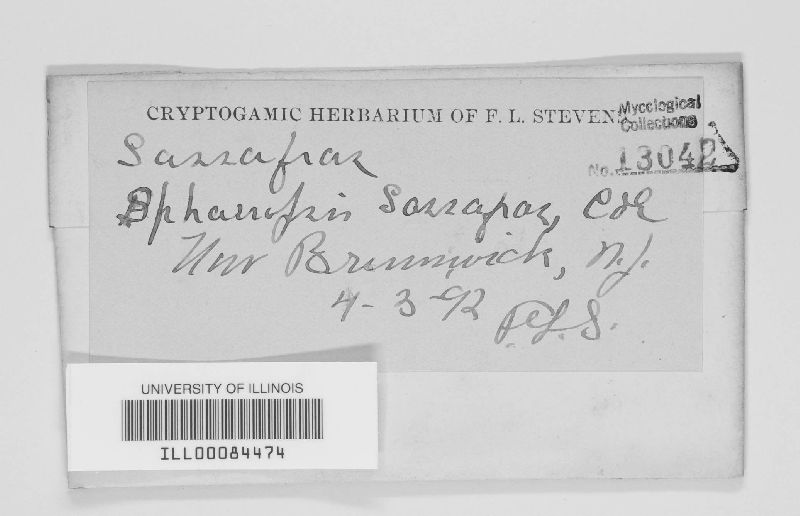 CRYPTOGAMIC HERBARIUM OF F. L. STEVENS
Mycological
Collections
No. 13042
Sassafras
Sphaeropsis Sassafras, C&E
New Brunswick, N.J.
4-3-92 F.L.S.
UNIVERSITY OF ILLINOIS
ILL00084474